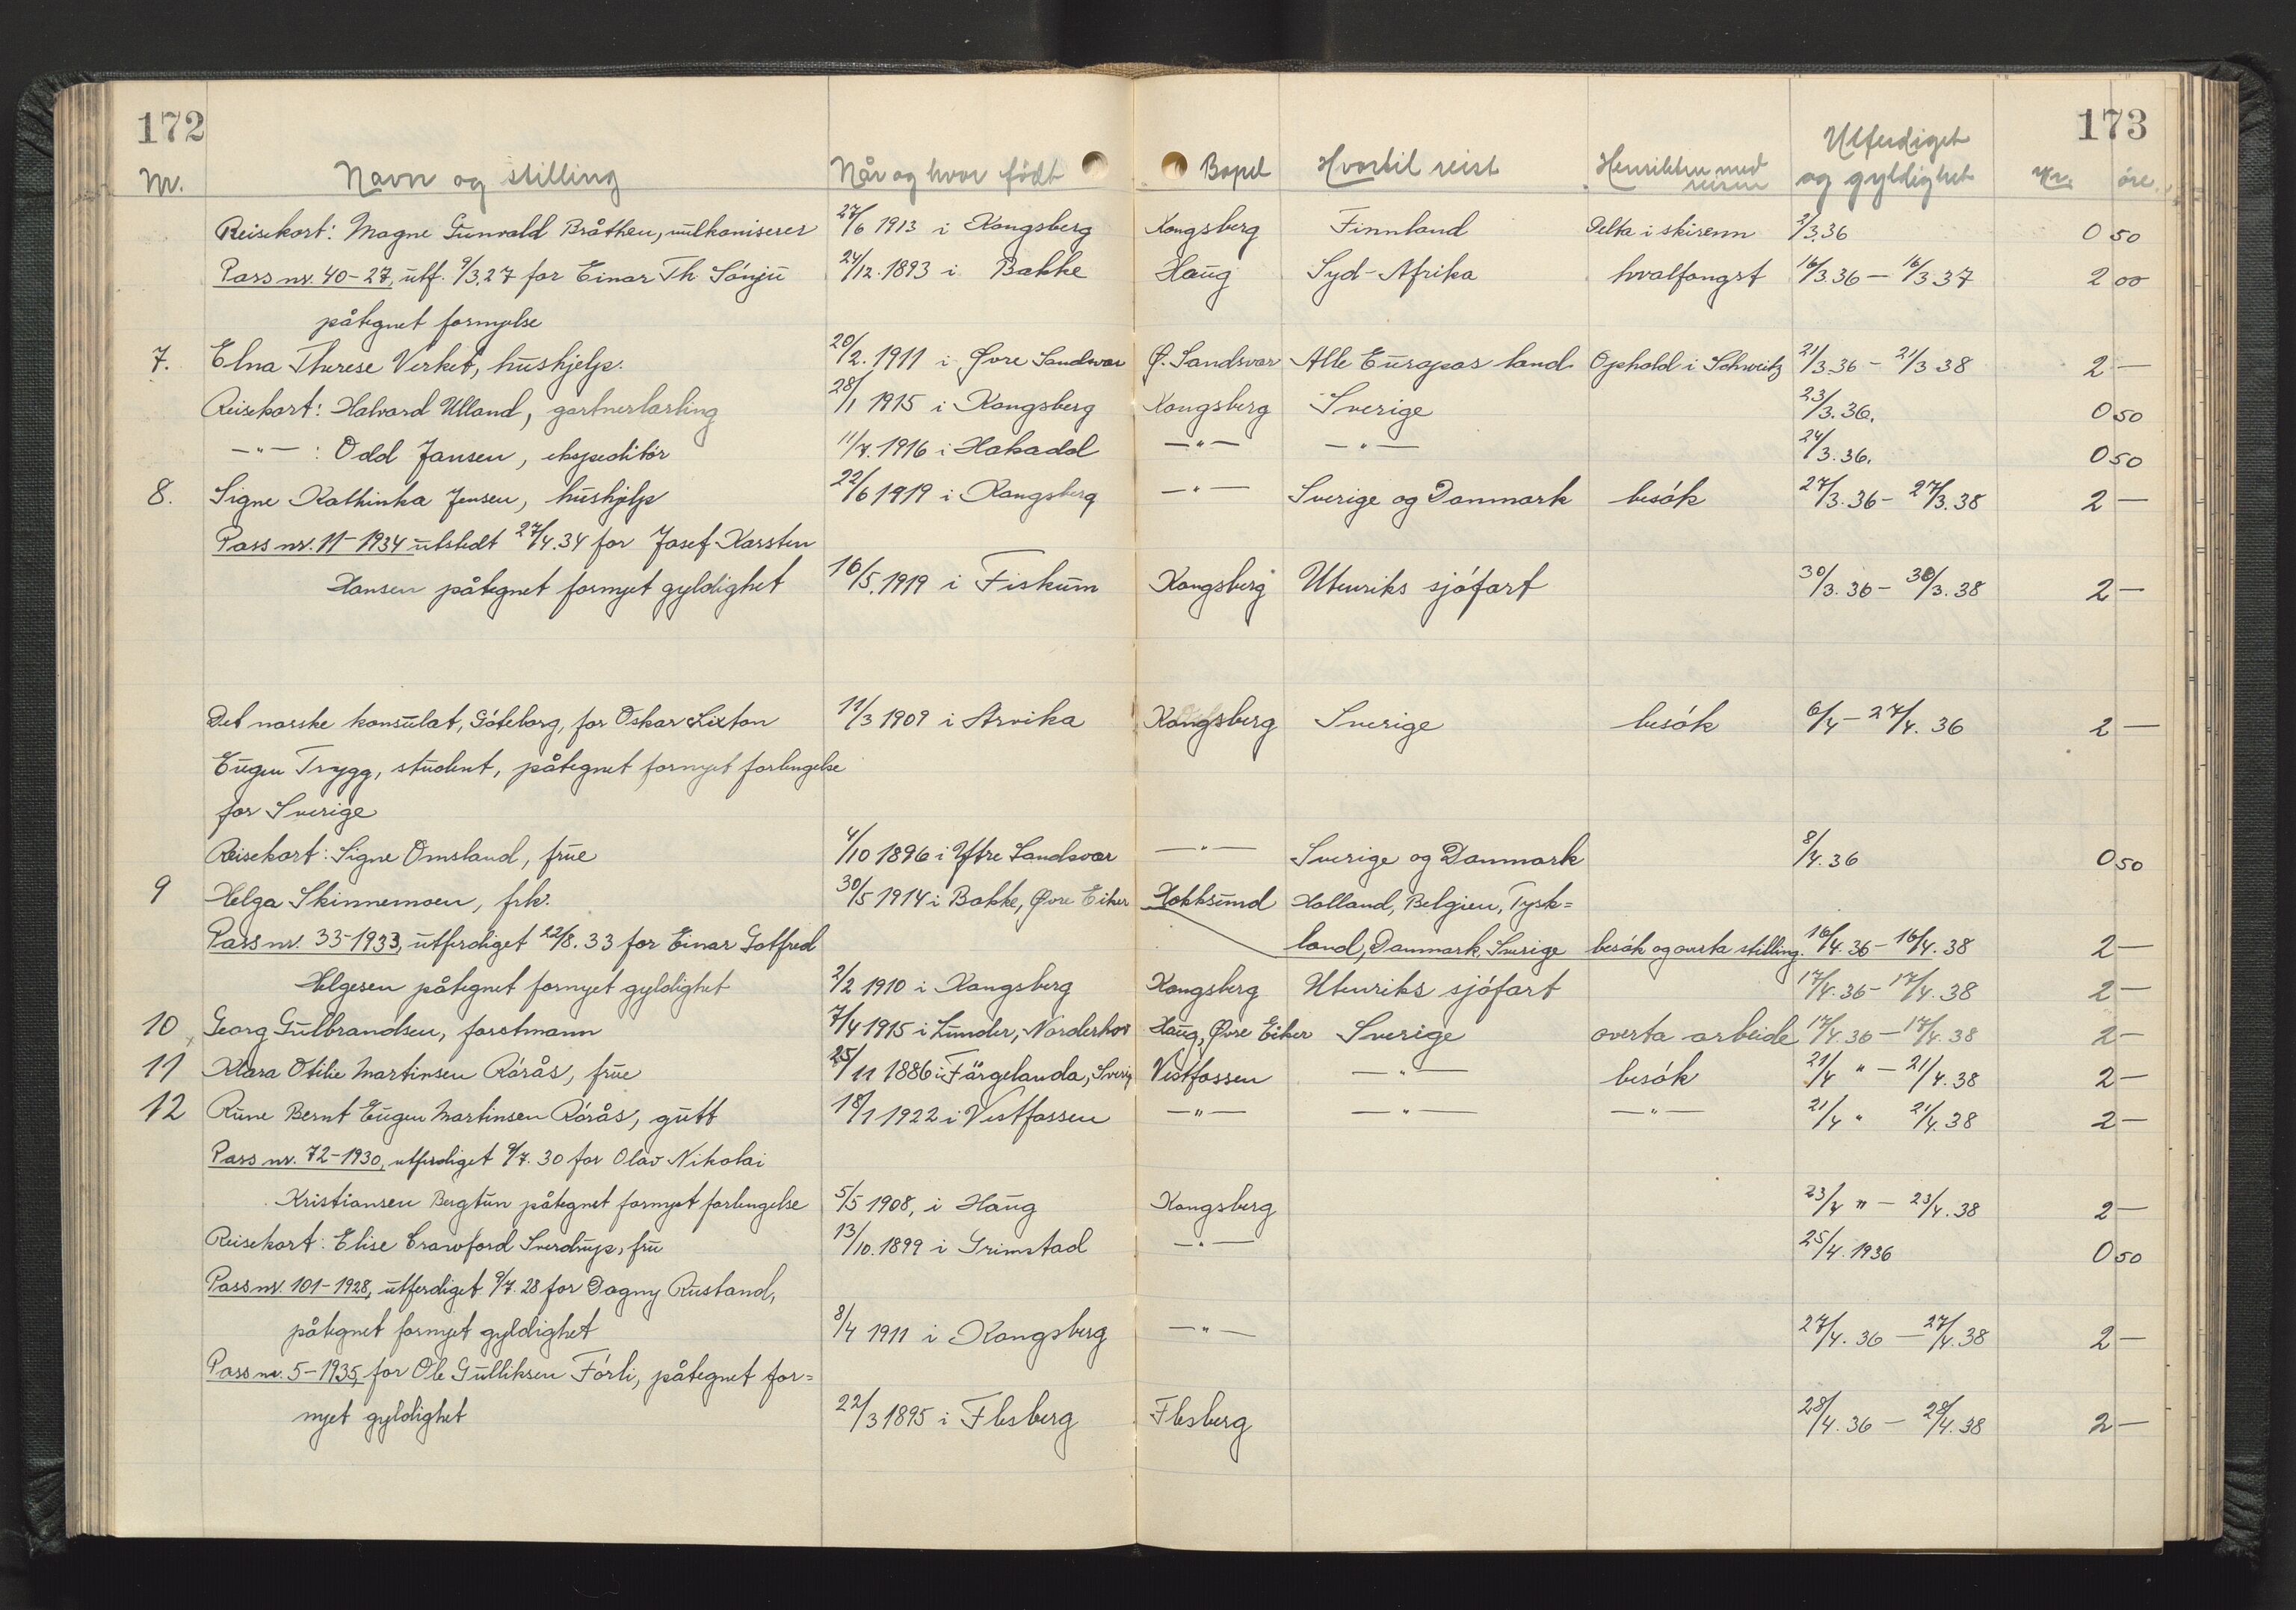 172 173
Nr. Navn og stilling Når og hvor født Bopel Hvortil reist Hensikten med reisen Utferdiget og gyldighet Kr. øre
Reisekort: Magne Gunvald Bråthen, vulkaniserer 27/6 1913 i Kongsberg Kongsberg Finnland Delta i skirenn 2/3.36 0 50
Pass nr. 40-27, utf. 9/3.27 for Einar Th Sönju 24/12.1893 i Bakke Haug Syd-Afrika hvalfangst 16/3.36 — 16/3 37 2 00
påtegnet fornyelse
7. Elna Therese Verket, hushjelp. 20/2.1911 i Øvre Sandsvær Ø. Sandsvær Alle Europas land Ophold i Schweitz 21/3.36 - 21/3 38 2 —
Reisekort: Halvard Ulland, gartnerlærling 28/1 1915 i Kongsberg Kongsberg Sverige 23/3.36. 0 50
—"— : Odd Jansen, ekspeditör 11/7.1916 i Hakadal —"— —"— 24/3.36. 0 50
8. Signe Kathinka Jensen, hushjelp 22/6 1919 i Kongsberg —"— Sverige og Danmark besök 27/3.36 - 27/3.38 2 —
Pass nr. 11-1934 utstedt 27/4.34 for Josef Karsten
Hansen påtegnet fornyet gyldighet 16/5.1919 i Fiskum Kongsberg Utenriks sjöfart 30/3.36 - 30/3.38 2 —
Det norske konsulat, Göteborg, for Oskar Sixten 11/3 1909 i Arvika Kongsberg Sverige besök 6/4 - 27/4.36 2 —
Eugen Trygg, student, påtegnet fornyet forlengelse
for Sverige
Reisekort: Signe Omsland, frue 4/10 1896 i Ytre Sandsvær —"— Sverige og Danmark 8/4.36 0 50
9 Helga Skinnemoen, frk. 30/5 1914 i Bakke, Øvre Eiker Hokksund Holland, Belgien, Tysk=
Pass nr. 33-1933, utferdiget 22/8.33 for Einar Gotfred land, Danmark, Sverige besök og overta stilling. 16/4.36 - 16/4.38 2 —
Helgesen påtegnet fornyet gyldighet 2/2 1910 i Kongsberg Kongsberg Utenriks sjöfart 17/4.36 - 17/4.38 2 —
10 Georg Gulbrandsen, forstmann 7/4 1915 i Lunder, Norderhov Haug, Øvre Eiker Sverige overta arbeide 17/4.36 - 17/4.38 2 -
11 Klara Otilie Martinsen Rörås, frue 25/11 1886 i Färgelanda, Sverig Vestfossen —"— besök 21/4 " - 21/4.38 2 -
12 Rune Bernt Eugen Martinsen Rörås, gutt 18/1 1922 i Vestfossen —"— —"— —"— 21/4 " 21/4.38 2 -
Pass nr. 72-1930, utferdiget 9/7.30 for Olav Nikolai
Kristiansen Bergtun påtegnet fornyet forlengelse 5/5 1908, i Haug Kongsberg 23/4 " - 23/4.38 2 —
Reisekort: Elise Crawford Sverdrup, fru 13/10.1899 i Grimstad —"— 25/4.1936 0 50
Pass nr. 101-1928, utferdiget 9/7.28 for Dagny Rustand,
påtegnet fornyet gyldighet 8/4 1911 i Kongsberg —"— 27/4.36 — 27/4.38 2 —
Pass nr. 5-1935, for Ole Gulliksen Förli, påtegnet for=
nyet gyldighet 22/3 1895 i Flesberg Flesberg 28/4.36 - 28/4.38 2 —